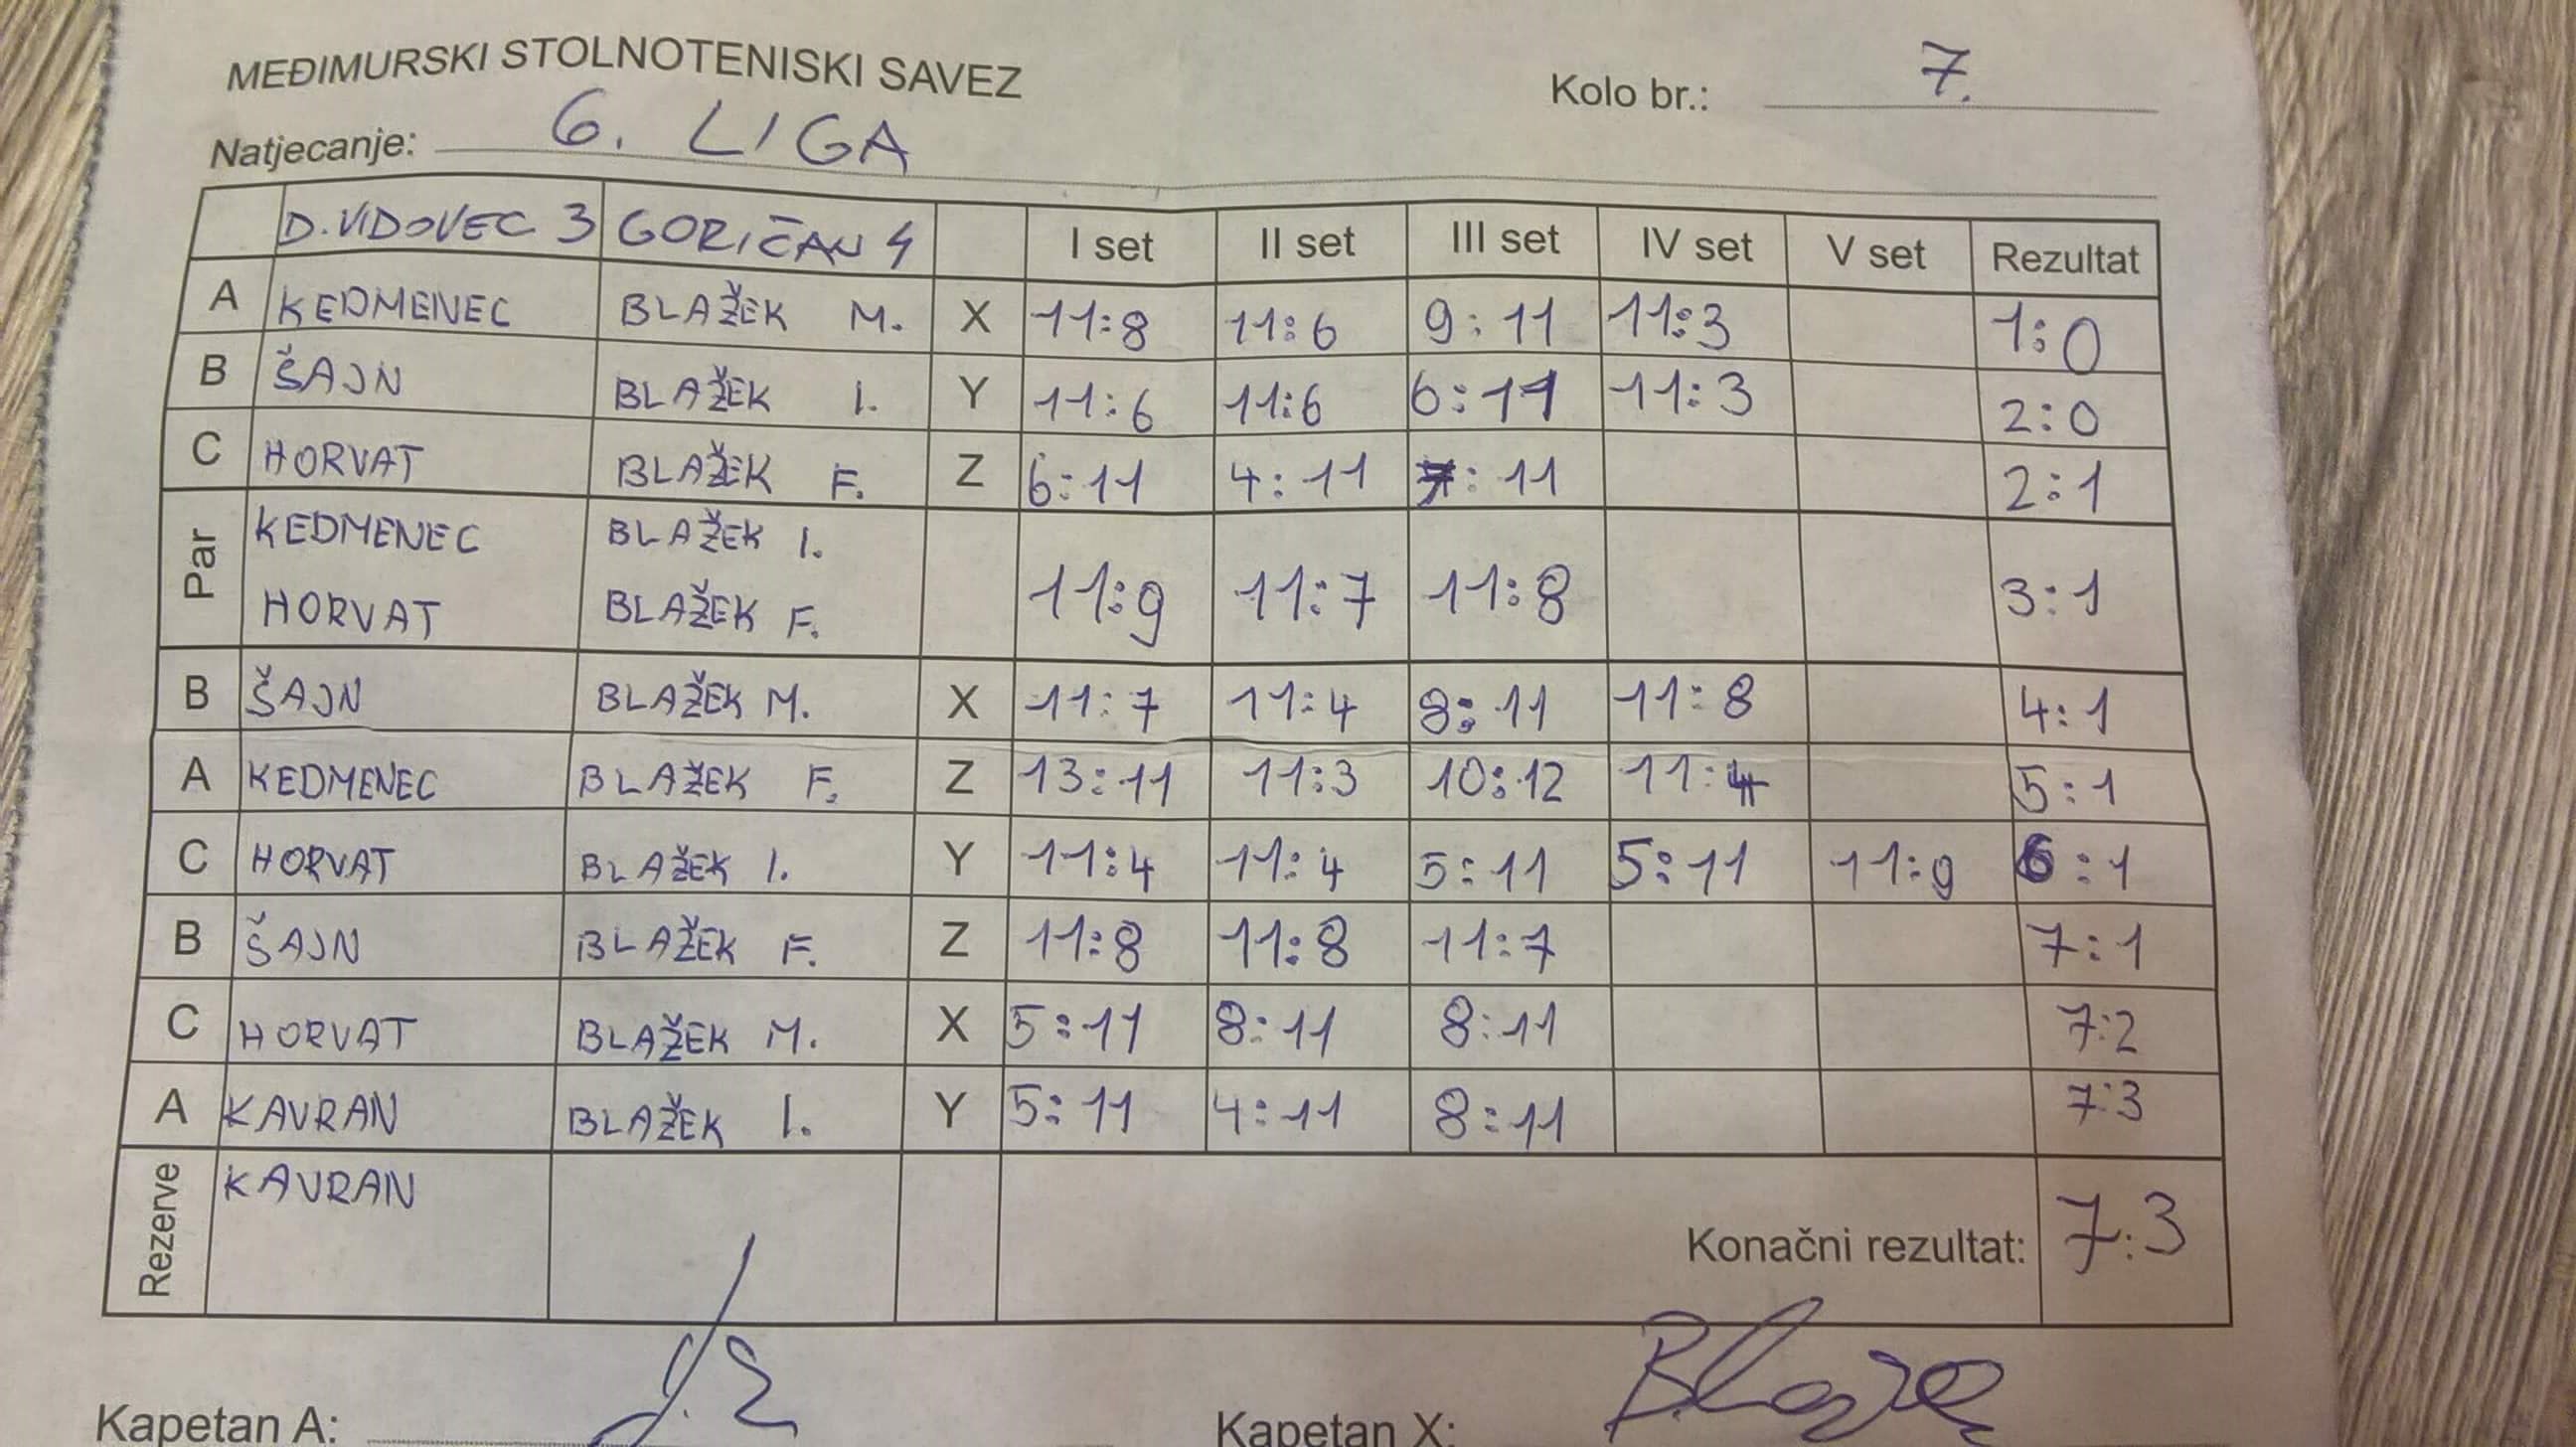 MEĐIMURSKI STOLNOTENISKI SAVEZ
Kolo br.: 7.
Natjecanje: 6. LIGA
D. VIDOVEC 3 GORIČAN 4 I set II set III set IV set V set Rezultat
A KEDMENEC BLAŽEK M. X 11:8 11:6 9:11 11:3 1:0
B ŠAJN BLAŽEK I. Y 11:6 11:6 6:11 11:3 2:0
C HORVAT BLAŽEK F. Z 6:11 4:11 7:11 2:1
Par KEDMENEC BLAŽEK I.
HORVAT BLAŽEK F. 11:9 11:7 11:8 3:1
B ŠAJN BLAŽEK M. X 11:7 11:4 8:11 11:8 4:1
A KEDMENEC BLAŽEK F. Z 13:11 11:3 10:12 11:4 5:1
C HORVAT BLAŽEK I. Y 11:4 11:4 5:11 5:11 11:9 6:1
B ŠAJN BLAŽEK F. Z 11:8 11:8 11:7 7:1
C HORVAT BLAŽEK M. X 5:11 8:11 8:11 7:2
A KAVRAN BLAŽEK I. Y 5:11 4:11 8:11 7:3
Rezerve KAVRAN
Konačni rezultat: 7:3
Kapetan A:
Kapetan X: